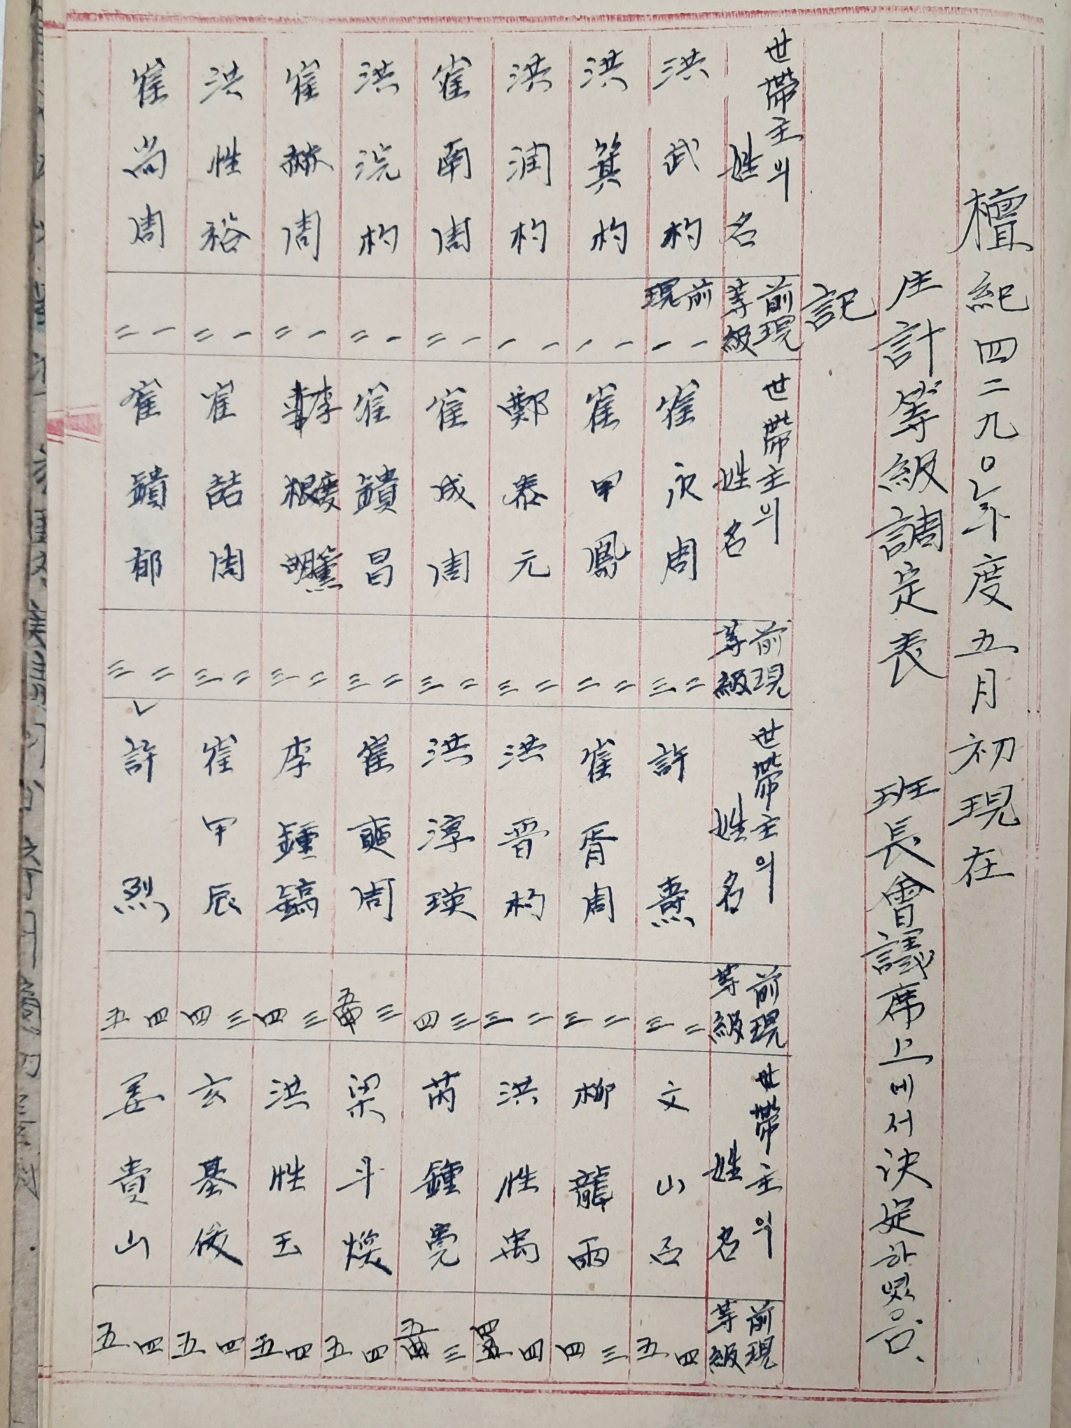 檀紀四二九〇年度五月初現在
生計等級調定表 班長會議席上에서決定하였음.
記
世帶主의姓名
洪武杓
洪箕杓
洪潤杓
崔南周
洪浣杓
崔赫周
洪性裕
崔尚周
前現等級
前現
一 一
一 一
一 一
一 二
一 二
一 二
一 二
一 二
世帶主의姓名
崔永周
崔甲鳳
鄭泰元
崔成周
崔鎮昌
李
崔喆周
崔鎮郁
前現等級
二 三
二 二
二 三
二 三
二 三
二 三
二 三
二 三
世帶主의姓名
許燾
崔胥周
洪晋杓
洪淳瑛
崔奭周
李鍾鎬
崔甲辰
許烈
前現等級
二 三
二 三
二 三
三 四
三
三 四
三 四
四 五
世帶主의姓名
文山石
柳龍雨
洪性禹
芮鍾冕
梁斗煥
洪性玉
玄基俊
姜貴山
前現等級
四 五
三 四
四
三
四 五
四 五
四 五
四 五